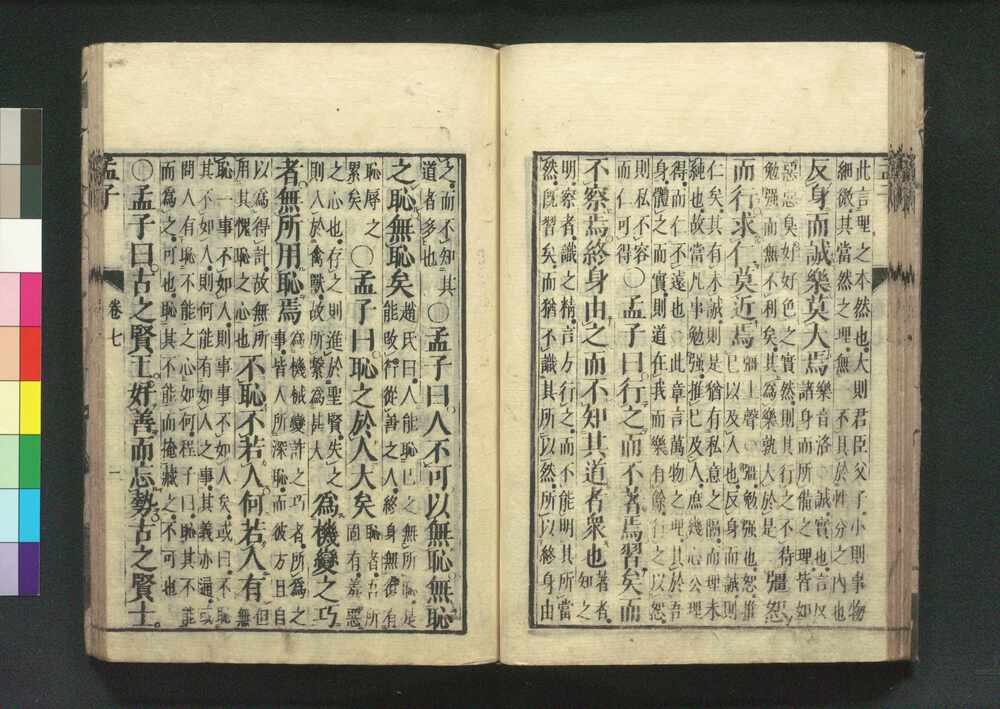 此言理之本然也大則君臣父子小則事物
細微其當然之理無一不具於性分之內也
反身而誠樂莫大焉
樂音洛〇誠實也言反
諸身而所備之理皆如
惡惡臭好好色之實然則其行之不待
勉強而無不利矣其為樂孰大於是
彊恕
而行求仁莫近焉
彊上聲〇彊勉強也恕推
己以及人也反身而誠則
仁矣其有未誠則是猶有私意之隔而理未
純也故當凡事勉強推己及人庶幾心公理
得而仁不遠也〇此章言萬物之理具於吾
身體之而實則道在我而樂有餘行之以恕
則私不容
而仁可得
〇孟子曰行之而不著焉習矣而
不察焉終身由之而不知其道者衆也
著者
知之
明察者識之精言方行之而不能明其所當
然既習矣而猶不識其所以然所以終身由
之而不知其
道者多也
〇孟子曰人不可以無恥無恥
之恥無恥矣
趙氏曰人能恥己之無所恥是
能改行從善之人終身無復有
恥辱之
累矣
〇孟子曰恥之於人大矣
恥者吾所
固有羞惡
之心也存之則進於聖賢失之
則入於禽獸故所繫為甚大
為機變之巧
者無所用恥焉
為機械變詐之巧者所為之
事皆人所深恥而彼方且自
以為得計故無所
用其愧恥之心也
不恥不若人何若人有
但
無
恥一事不如人則事事不如人矣或曰不恥
其不如人則何能有如人之事其義亦通或
問人有恥不能之心如何程子曰恥其不能
而為之可也恥其不能而掩藏之不可也
〇孟子曰古之賢王好善而忘勢古之賢士
孟子
卷七
一